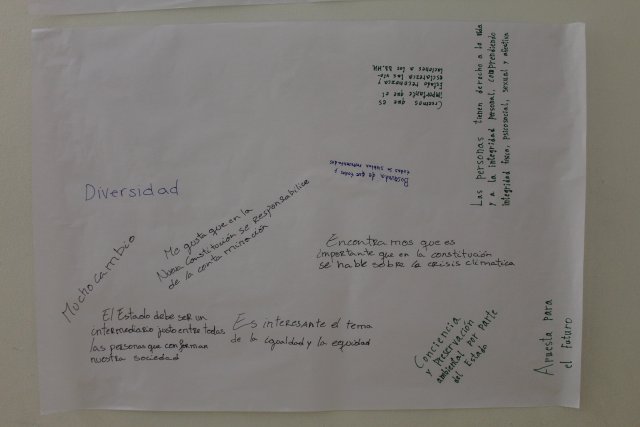 Creemos que es
importante que el
Estado reconozca y
esclarezca las vio-
laciones a los DD.HH.
Las personas tienen derecho a la vida
y a la integridad personal, comprendiendo
integridad física, psicosocial, sexual y afectiva
que todos y
todas se sientan representados
Diversidad
Mucho cambio
Me gusta que en la
Nueva Constitución se responsabilice
de la contaminación
Encontramos que es
importante que en la constitución
se hable sobre la crisis climatica
El Estado debe ser un
intermediario justo entre todas
las personas que conforman
nuestra sociedad
Es interesante el tema
de la igualdad y la equidad
Conciencia
y preservación
ambiental por parte
del Estado
Apuesta para
el futuro